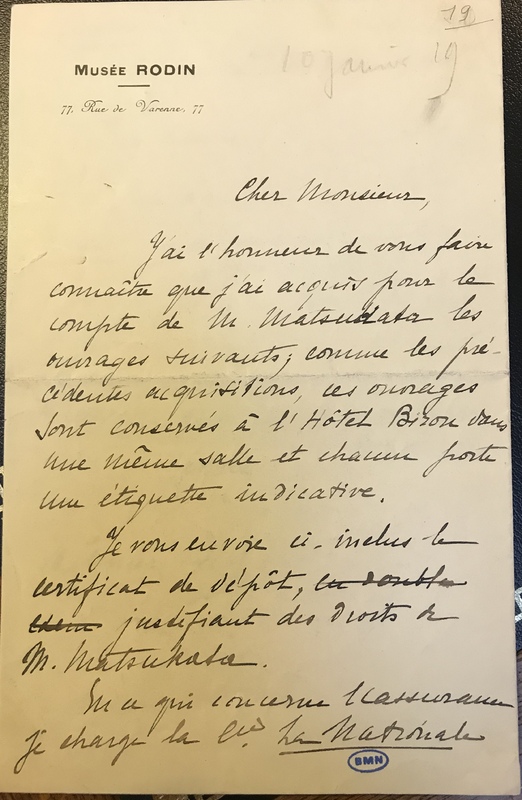 19
10 janvier 19
MUSÉE RODIN
77, Rue de Varenne, 77
Cher Monsieur,
J'ai l'honneur de vous faire
connaître que j'ai acquis pour le
compte de M. Matsukata les
ouvrages suivants; comme les pré-
cédentes acquisitions, ces ouvrages
sont conservés à l'Hôtel Biron dans
une même salle et chacun porte
une étiquette indicative.
Je vous envoie ci-inclus le
certificat de dépôt, en double
exem justifiant des droits de
M. Matsukata.
En ce qui concerne l'assurance
je charge la Cie La Nationale
BMN